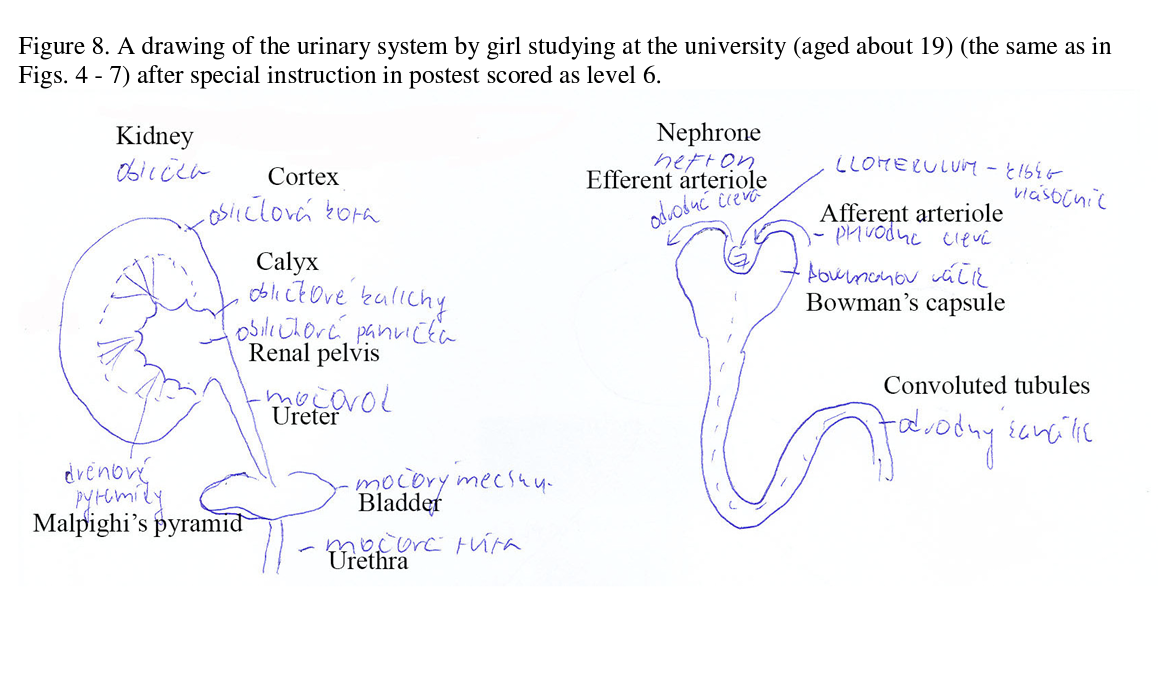 Figure 8. A drawing of the urinary system by girl studying at the university (aged about 19) (the same as in
Figs. 4 - 7) after special instruction in postest scored as level 6.
Kidney
oblička
Cortex
obličková kora
Calyx
obličkové kalichy
obličková panvička
Renal pelvis
močovod
Ureter
drenové
pyramídy
Malpighi's pyramid
močový
Bladder
močová rúra
Urethra
Nephrone
nefron
Efferent arteriole
odvodná cieva
GLOMERULUM - klbko
vlásočníc
Afferent arteriole
prívodná cieva
Bowmanov váčik
Bowman's capsule
Convoluted tubules
odvodný kanálik